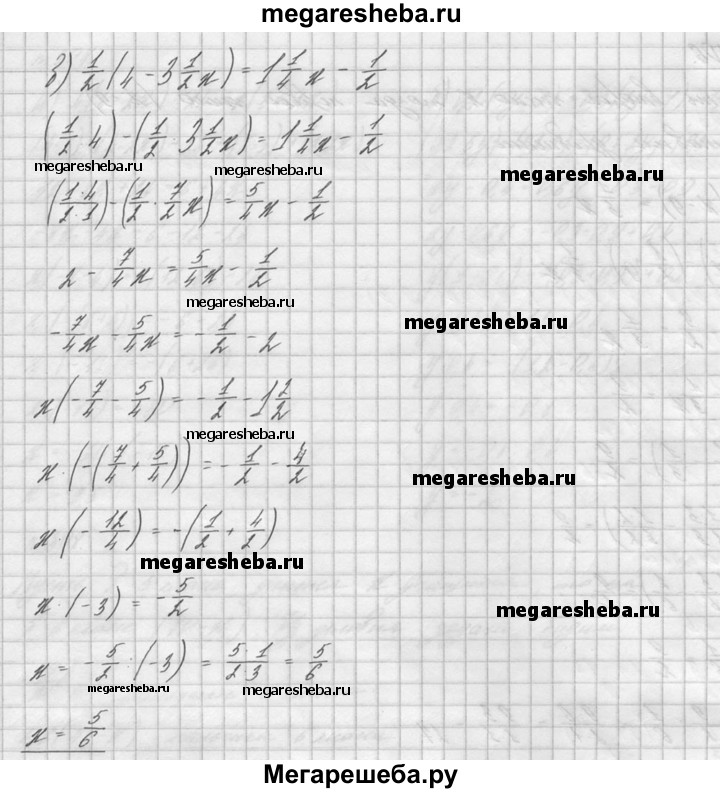 megaresheba.ru
в) 1/2 (4 - 3 1/2 x) = 1 1/4 x - 1/2
(1/2 · 4) - (1/2 · 3 1/2 x) = 1 1/4 x - 1/2
megaresheba.ru megaresheba.ru megaresheba.ru
(1·4/2·1) - (1/2 · 7/2 x) = 5/4 x - 1/2
2 - 7/4 x = 5/4 x - 1/2
megaresheba.ru
megaresheba.ru
-7/4 x - 5/4 x = -1/2 - 2
x (-7/4 - 5/4) = -1/2 - 1 2/2
megaresheba.ru
x · (-(7/4 + 5/4)) = -1/2 - 4/2
megaresheba.ru
x · (-12/4) = -(1/2 + 4/2)
megaresheba.ru
x · (-3) = -5/2
megaresheba.ru
x = -5/2 : (-3) = 5·1/2·3 = 5/6
megaresheba.ru megaresheba.ru
x = 5/6
Мегарешеба.ру